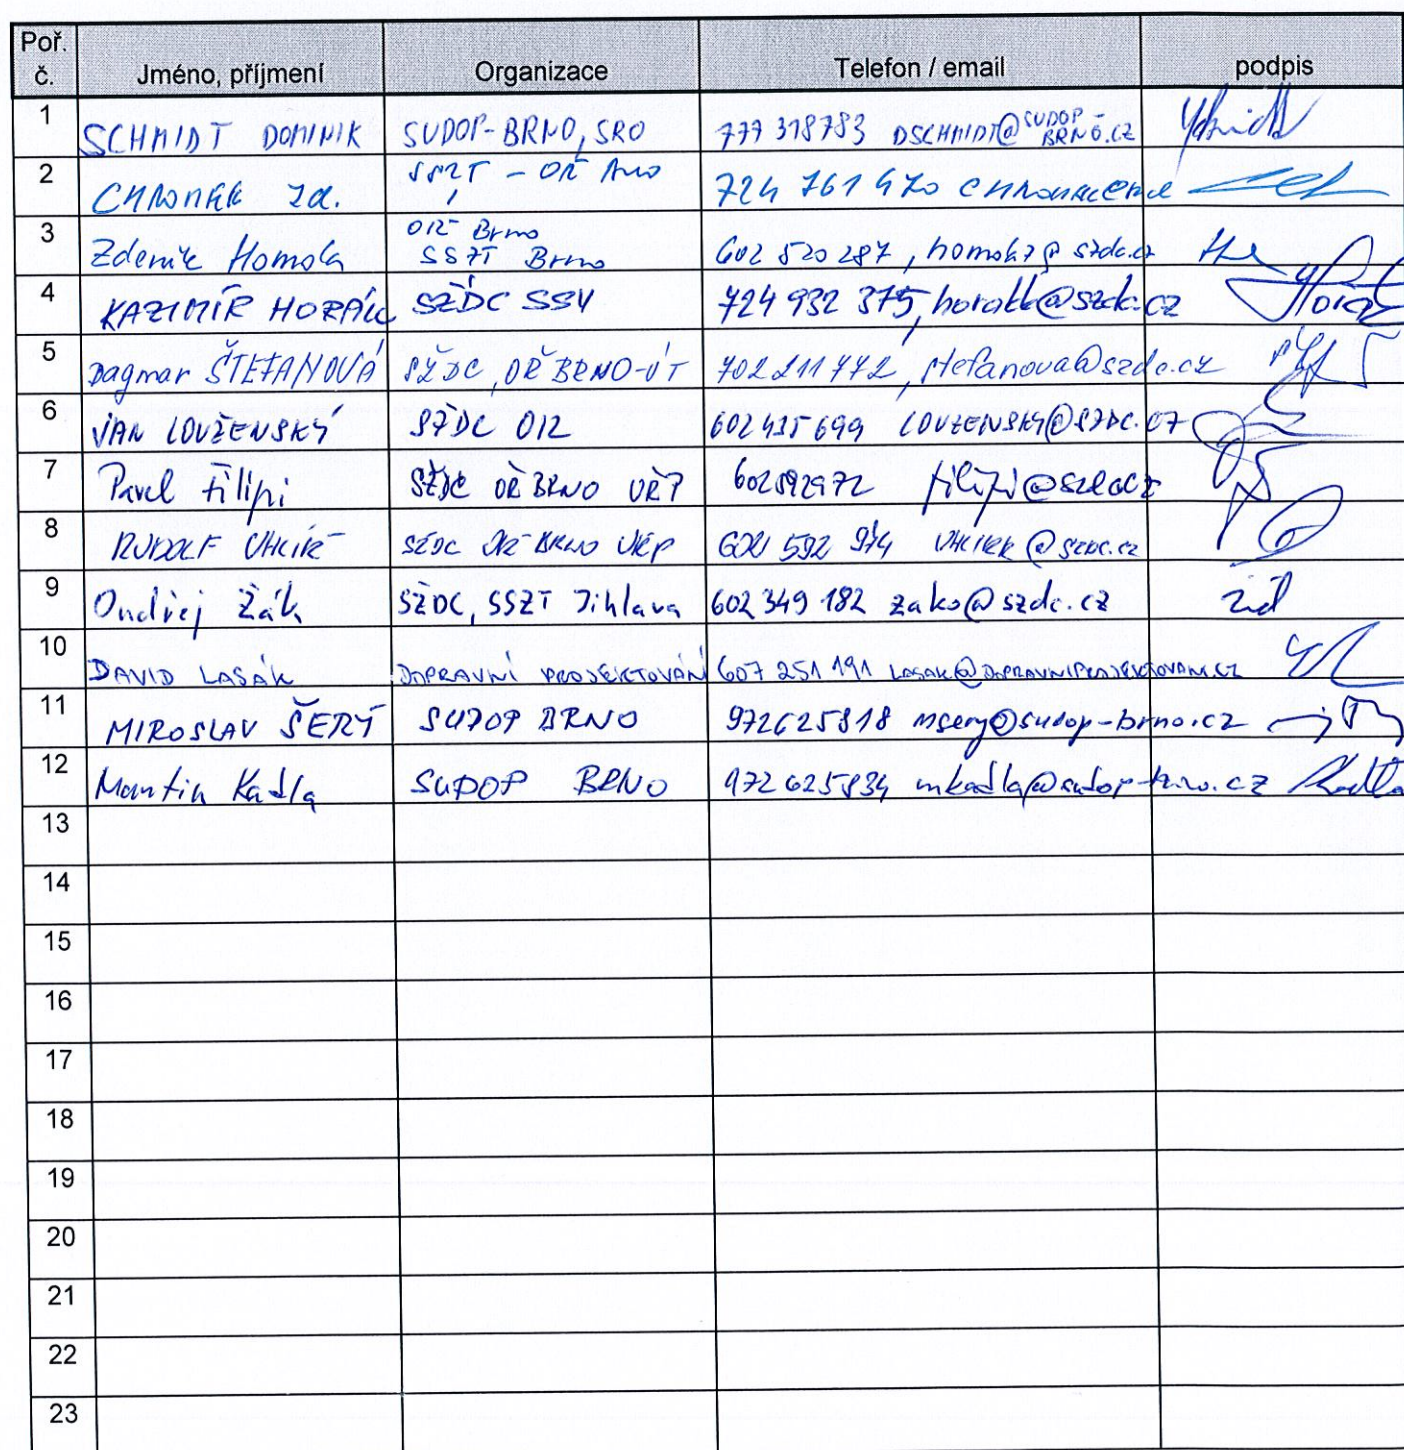 Poř. č. Jméno, příjmení Organizace Telefon / email podpis
1 SCHMIDT DOMINIK SUDOP-BRNO, SRO 777 318783 DSCHMIDT@SUDOP-BRNO.CZ
2 724 761 470
3 Zdeněk Homola OŘ Brno SSZT Brno 602 520 287,
4 KAZIMÍR HORÁK SŽDC SSV 724 932 375, @szdc.cz
5 Dagmar ŠTEFANOVÁ SŽDC, OŘ BRNO-ÚT 702 211 772, stefanova@szdc.cz
6 JAN LOUŽENSKÝ SŽDC 602 435 699 LOUZENSKY@SZDC.CZ
7 Pavel Filipi SŽDC OŘ BRNO 602592972
8 RUDOLF SŽDC OŘ BRNO 592 974
9 Ondřej Žák SŽDC, SSZT Jihlava 602 349 182 zako@szdc.cz
10 DAVID LASÁK DOPRAVNÍ PROJEKTOVÁNÍ 607 251 191 LASAK@DOPRAVNIPROJEKTOVANI.CZ
11 MIROSLAV ŠERÝ SUDOP BRNO 972625818 msery@sudop-brno.cz
12 Martin Kadla SUDOP BRNO 972 625834 mkadla@sudop-brno.cz
13
14
15
16
17
18
19
20
21
22
23